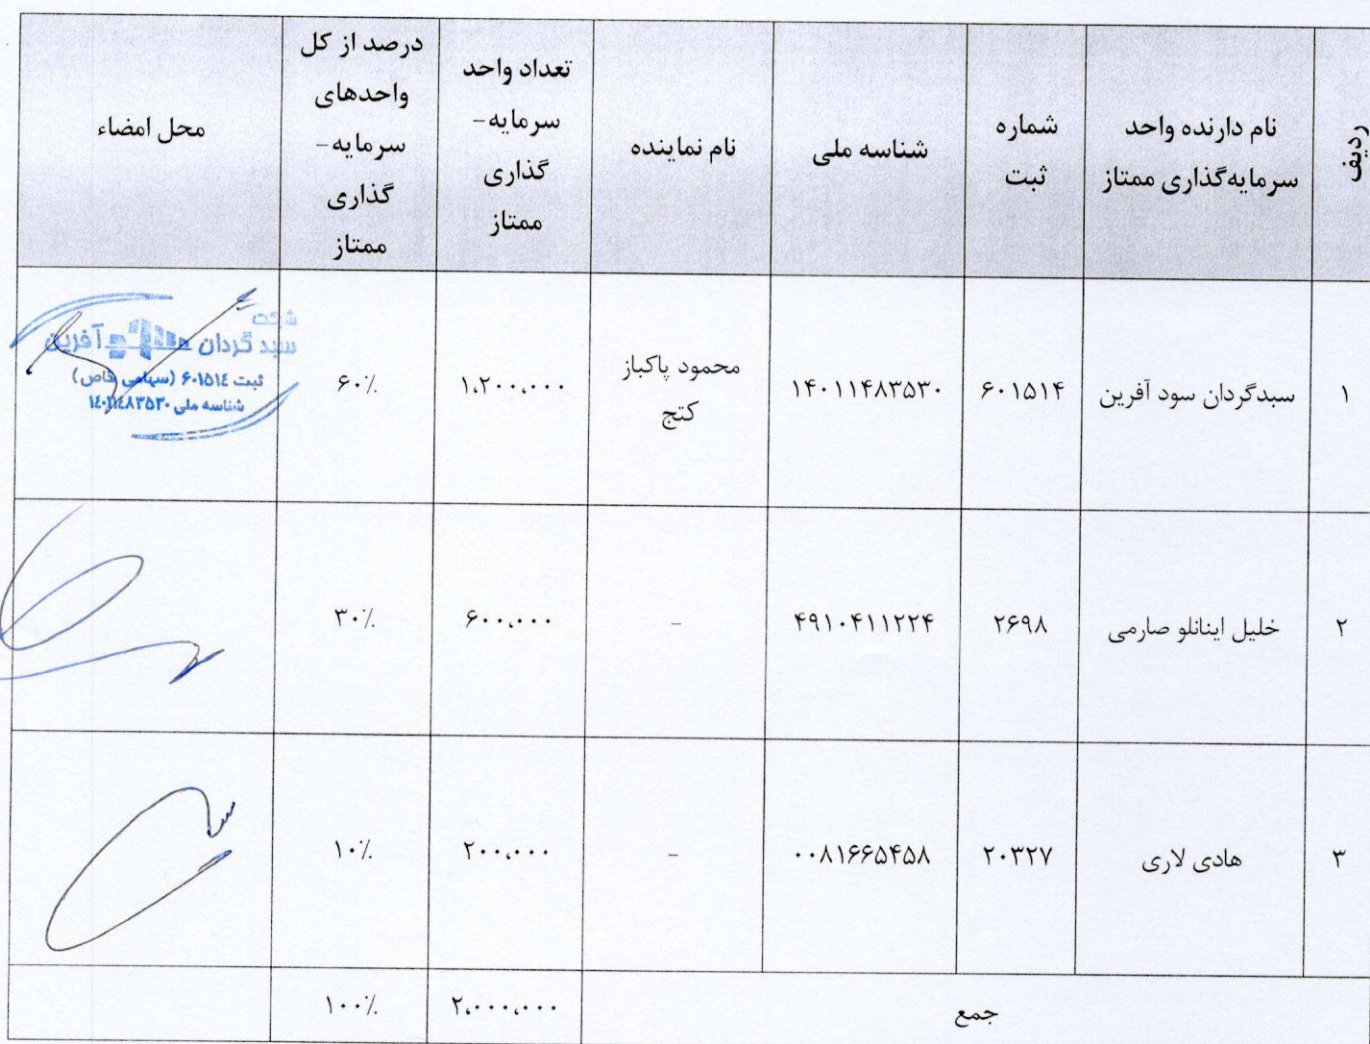 ردیف
نام دارنده واحد
سرمایه‌گذاری ممتاز
شماره
ثبت
شناسه ملی
نام نماینده
تعداد واحد
سرمایه-
گذاری
ممتاز
درصد از کل
واحدهای
سرمایه-
گذاری
ممتاز
محل امضاء
۱
سبدگردان سود آفرین
۶۰۱۵۱۴
۱۴۰۱۱۴۸۳۵۳۰
محمود پاکباز
کتج
۱،۲۰۰،۰۰۰
۶۰٪
شرکت
سبد گردان آفرین
ثبت ۶۰۱۵۱۴ (سهامی خاص)
شناسه ملی ۱۴۰۱۱۴۸۳۵۳۰
۲
خلیل اینانلو صارمی
۲۶۹۸
۴۹۱۰۴۱۱۲۲۴
-
۶۰۰،۰۰۰
۳۰٪
۳
هادی لاری
۲۰۳۲۷
۰۰۸۱۶۶۵۴۵۸
-
۲۰۰،۰۰۰
۱۰٪
جمع
۲،۰۰۰،۰۰۰
۱۰۰٪